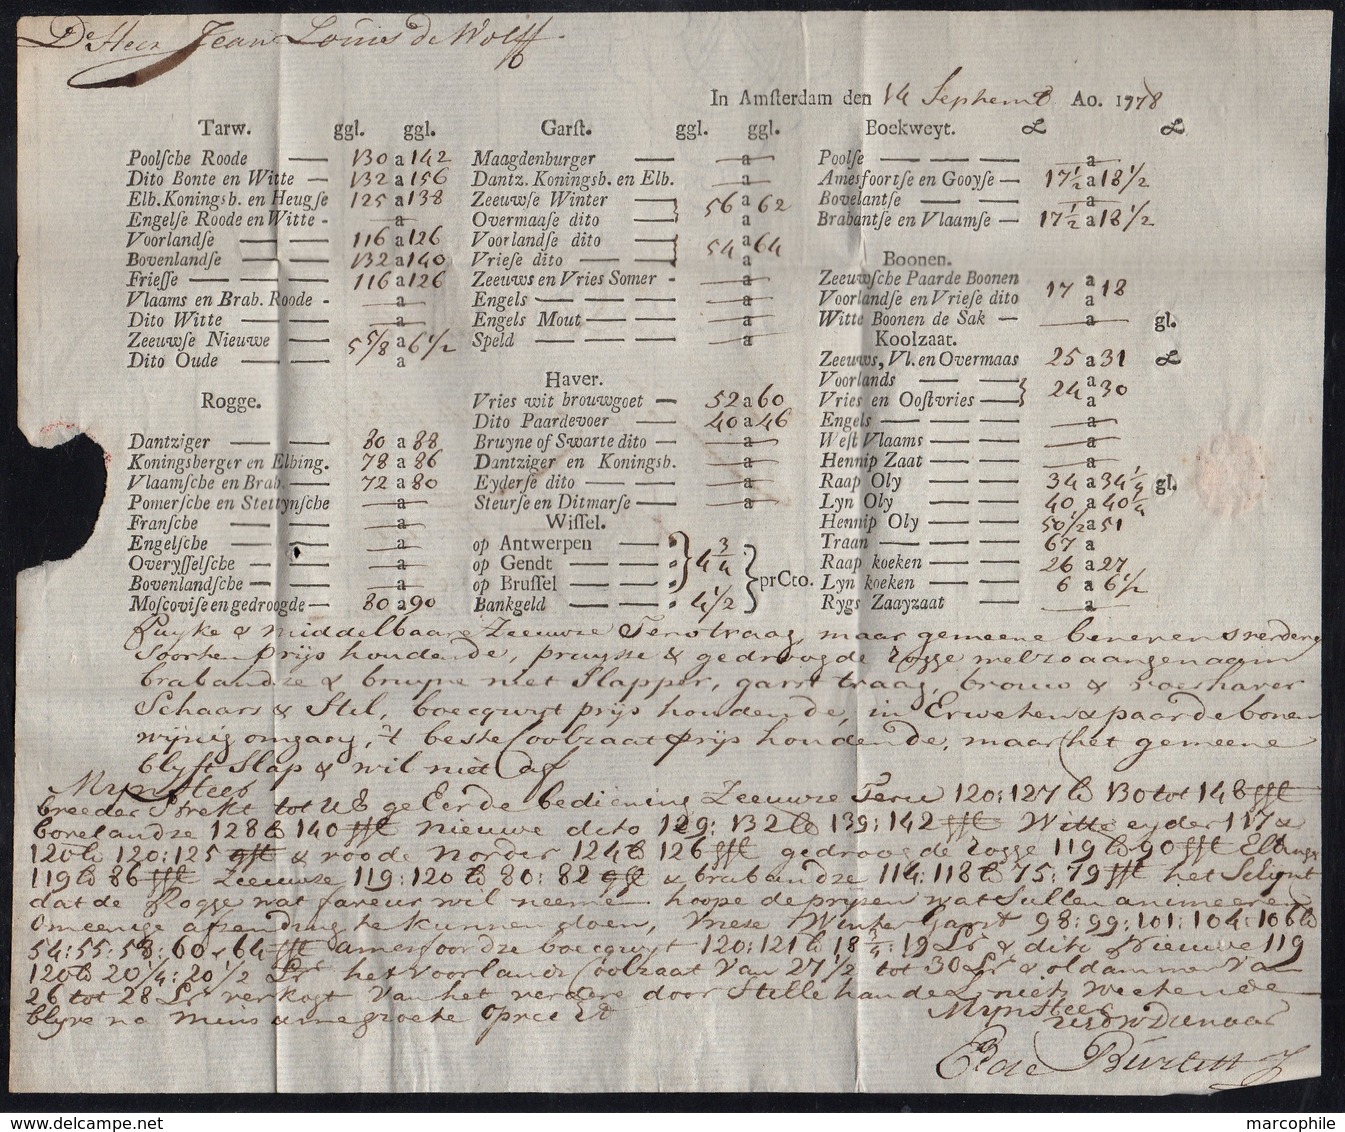 De Heer Jean Louis de Wolff.
In Amſterdam den 14 Septemb Ao. 1778
Tarw. ggl. ggl.
Poolſche Roode 130 a 142
Dito Bonte en Witte 132 a 156
Elb. Koningsb. en Heugſe 125 a 138
Engelſe Roode en Witte - a
Voorlandſe 116 a 126
Bovenlandſe 132 a 140
Frieſſe 116 a 126
Vlaams en Brab. Roode - a
Dito Witte a
Zeeuwſe Nieuwe 5 5/8 a 6 1/2
Dito Oude a
Rogge.
Dantziger 80 a 88
Koningsberger en Elbing. 78 a 86
Vlaamſche en Brab. 72 a 80
Pomerſche en Stettynſche a
Franſche a
Engelſche a
Overyſſelſche a
Bovenlandſche a
Moſcoviſe en gedroogde 80 a 90
Garſt. ggl. ggl.
Maagdenburger a
Dantz. Koningsb. en Elb. a
Zeeuwſe Winter } 56 a 62
Overmaaſe dito a
Voorlandſe dito } 54 a 64
Vrieſe dito a
Zeeuws en Vries Somer - a
Engels a
Engels Mout a
Speld a
Haver.
Vries wit brouwgoet 52 a 60
Dito Paardevoer 40 a 46
Bruyne of Swarte dito a
Dantziger en Koningsb. a
Eyderſe dito a
Steurſe en Ditmarſe a
Wiſſel.
op Antwerpen
op Gendt } 4 3/4
op Bruſſel
Bankgeld 4 1/2 } prCto.
Boekweyt. £ £
Poolſe a
Amesfoortſe en Gooyſe 17 1/2 a 18 1/2
Bovelantſe a
Brabantſe en Vlaamſe 17 1/2 a 18 1/2
Boonen.
Zeeuwſche Paarde Boonen a
Voorlandſe en Vrieſe dito 17 a 18
Witte Boonen de Sak a gl.
Koolzaat.
Zeeuws, Vl. en Overmaas 25 a 31 £
Voorlands } 24 a 30
Vries en Ooſtvries a
Engels a
Weſt Vlaams a
Hennip Zaat a
Raap Oly 34 a 34 1/4 gl.
Lyn Oly 40 a 40 1/4
Hennip Oly 50 1/2 a 51
Traan 67 a
Raap koeken 26 a 27
Lyn koeken 6 a 6 1/2
Rygs Zaayzaat a
Puyke & middelbaare Zeeuwze Terw traag, maar gemeene benevens verdere
Soorten prijs houdende, pruysse & gedroogde rogge wel zo aangenaam
brabandze & bruyne niet Slapper, garst traag, brouw & voerhaver
Schaars & Stil, boecqwyt prijs houdende, in Erweten & paardebonen
wynig omgang, 't beste Coolzaat prijs houdende, maar het gemeene
blyft Slap & wil niet af
Myn Heer
breeder Strekt tot UE geEerde bediening Zeeuwze Terw 120:127 lb 130 tot 148
bovelandze 128 lb 140 nieuwe dito 129:132 lb 139:142 Witte eyder 117 &
120 lb 120:125 & roode Norder 124 lb 126 gedroogde rogge 119 lb 90 Elbinger
119 lb 86 Zeeuwze 119:120 lb 80:82 & brabandze 114:118 lb 75:79 het Schynt
dat de Rogge wat faveur wil neemen hoope de prysen wat Sullen animeeren
Omeenige afzending te kunnen doen, Vriese Winter Garst 98:99:101:104:106 lb
54:55:58:60 & 64 amersfoordze boecqwyt 120:121 lb 18 3/4:19 & dito Nieuwe 119
120 lb 20 1/4:20 1/2 het voorlands Coolzaat van 27 1/2 tot 30 & oldammer van
26 tot 28 verkogt van het verdere door Stille handel niets weetende
blyve na minsaame groete opregt
Myn Heer
UEDW Dienaar